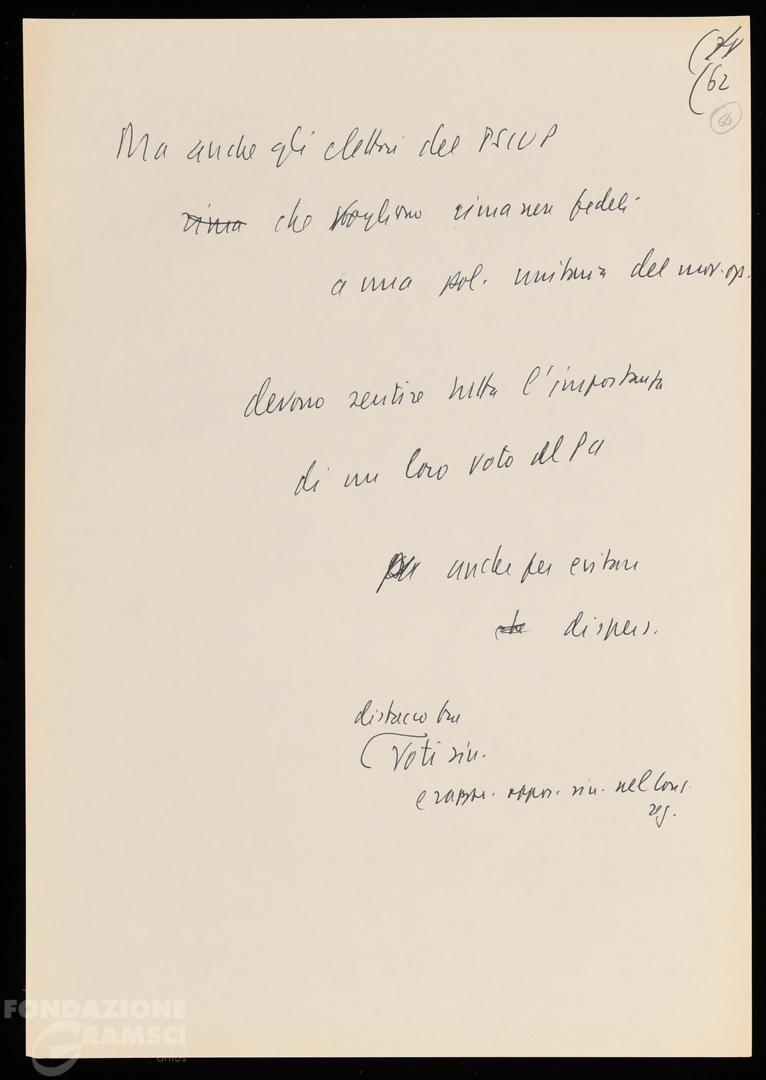 62
64
Ma anche gli elettori del PSIUP
rima che vogliono rimanere fedeli
a una pol. unitaria del mov. op.
devono sentire tutta l'importanza
di un loro voto al PCI
anche per evitare
che dispers.
distacco tra
voti sin.
e rappr. oppos. sin. nel Cons.
reg.
FONDAZIONE
GRAMSCI
onlus